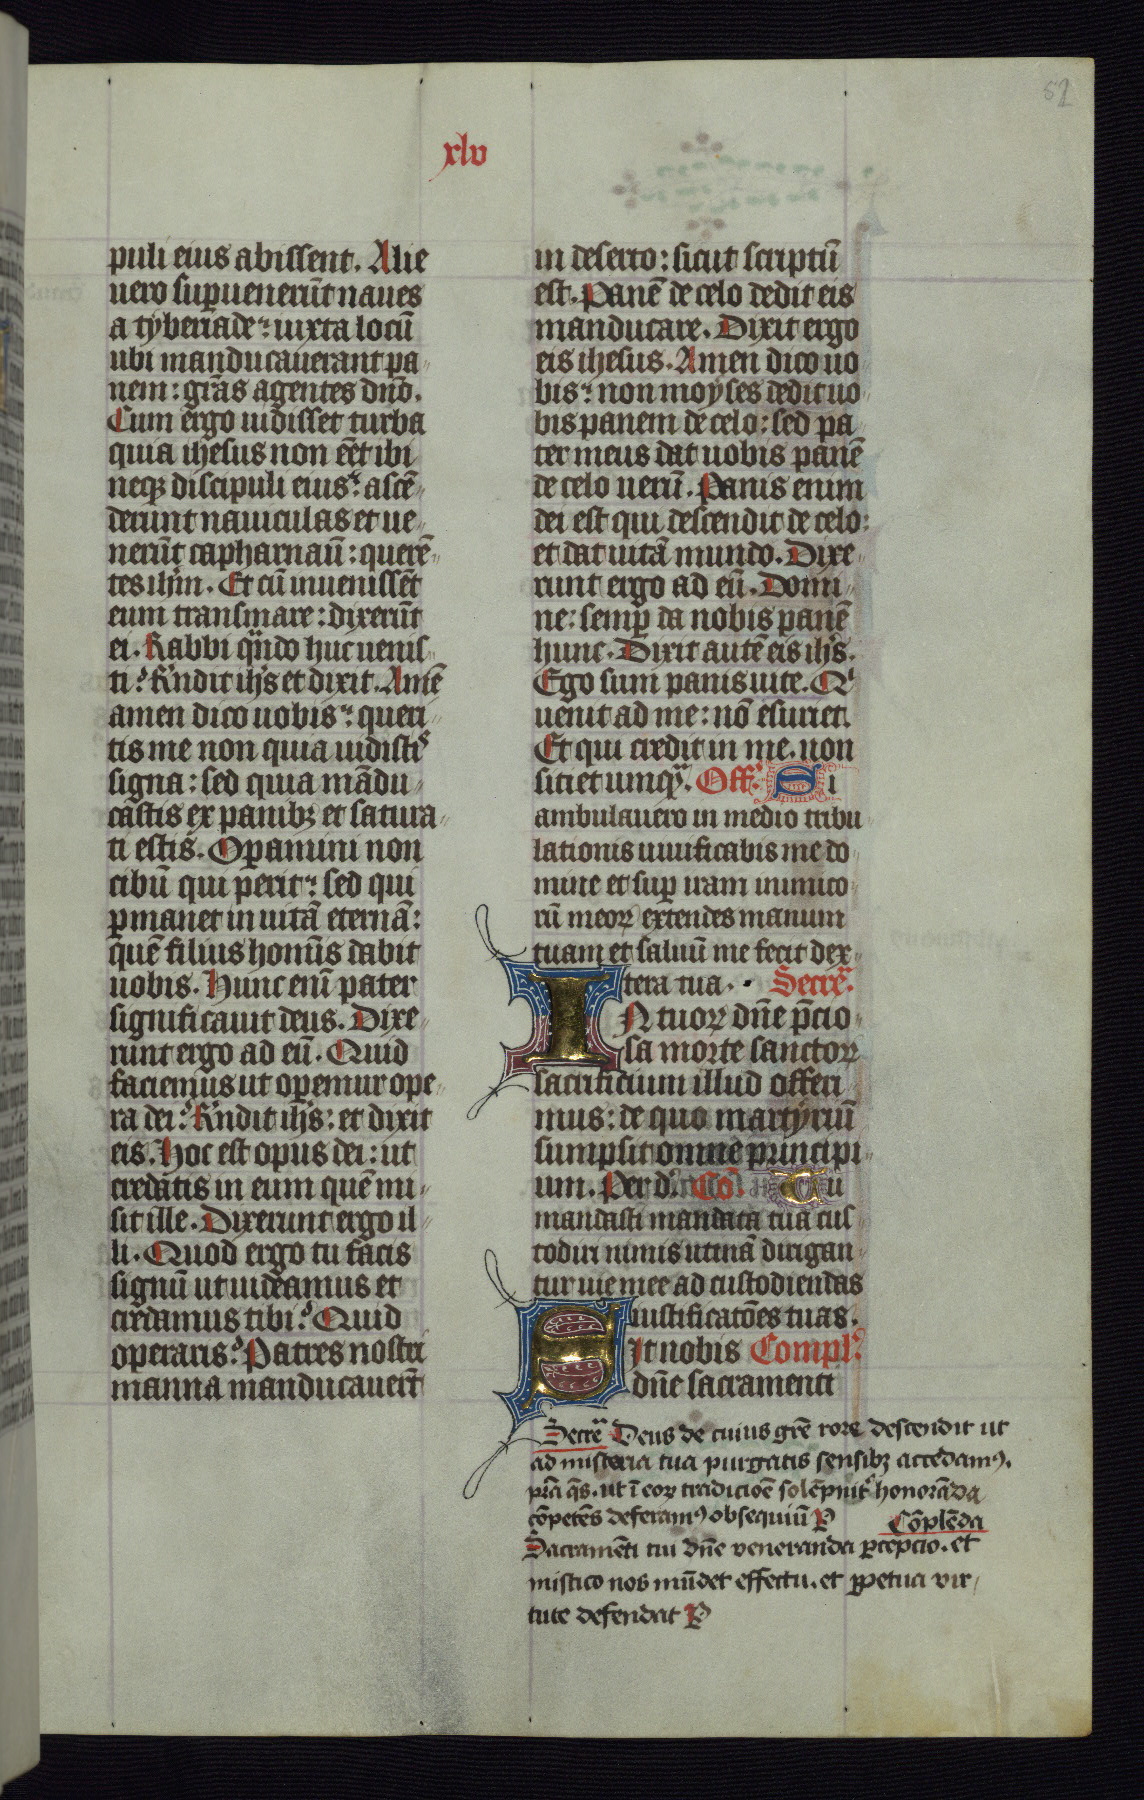 52
xlv
puli eius abissent. Alie
uero sup̱uenerūt naues
a tyberiade: iuxta locū
ubi manducauerant pa-
nem: gr̄as agentes dn̄o.
Cum ergo uidisset turba
quia ihesus non eēt ibi
neqꝫ discipuli eius: ascē-
derunt nauiculas et ue-
nerūt capharnaū: querē-
tes ih̄m. Et cū inuenissēt
eum trans mare: dixerūt
ei. Rabbi qn̄do huc uenis-
ti? R̄ndit ih̄s et dixit. Amē
amen dico uobis: queri-
tis me non quia uidistis
signa: sed quia mādu-
castis ex panibꝫ et satura-
ti estis. Op̱amini non
cibū qui perit: sed qui
ꝑmanet in uitā eternā:
quē filius hominis dabit
uobis. Hunc enī pater
significauit deus. Dixe-
runt ergo ad eū. Quid
faciemus ut operemur ope-
ra dei? R̄ndit ih̄s: et dixit
eis. Hoc est opus dei: ut
credatis in eum quē mi-
sit ille. Dixerunt ergo il-
li. Quod ergo tu facis
signū ut uideamus et
credamus tibi? Quid
operaris? Patres nostri
manna manducauer̄t
in deserto: sicut scriptū
est. Panē de celo dedit eis
manducare. Dixit ergo
eis ihesus. Amen dico uo
bis: non moyses dedit uo-
bis panem de celo: sed pa-
ter meus dat uobis panē
de celo uerū. Panis enim
dei est qui descendit de celo:
et dat uitā mundo. Dixe-
runt ergo ad eū. Domi-
ne: semꝑ da nobis panē
hunc. Dixit autē eis ih̄s.
Ego sum panis uite. Qⁱ
uenit ad me: nō esuriet.
Et qui credit in me. non
sitiet umqᵃ. Off. Si
ambulauero in medio tribu-
lationis uiuificabis me do-
mine et suꝑ iram inimico-
rū meoꝝ extendes manum
tuam et saluū me fecit dex-
tera tua. Secreᵃ.
IN tuoꝝ dn̄e p̄cio-
sa morte sanctoꝝ
sacrificium illud offeri-
mus: de quo martyriū
sumpsit omne principi-
um. Per d. Cō. Tu
mandasti mandata tua cus-
todiri nimis utinā dirigan-
tur uie mee ad custodiendas
iustificatōes tuas.
Sit nobis Compl.
dn̄e sacramenti
Secreᵃ Deus de cuius gr̄e rore descendit ut
ad misteria tua purgatis sensibꝫ accedamꝰ.
p̄sta q̄s. ut ī eoꝝ tradicioē solēpnit̉ honorāda
cōpetēs deferamꝰ obsequiū P Cōplēda
Sacramēti tui dn̄e veneranda ꝑcepcio. et
mistico nos mūdet effectu. et ꝑpetua vir-
tute defendat P